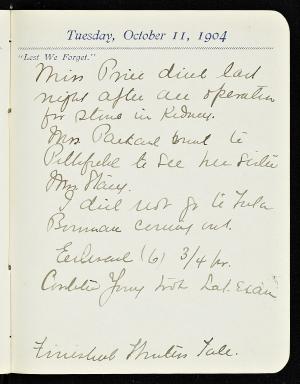 Tuesday, October 11, 1904
"Lest We Forget."
Miss Price died last
night after an operation
for stone in Kidney.
Mrs Packard went to
Pittsfield to see her sister
Mrs Stacy.
I did not go to
Bowman coming out.
(6) 3/4 hr.
took Lat. Exam
Finished Winters Tale.